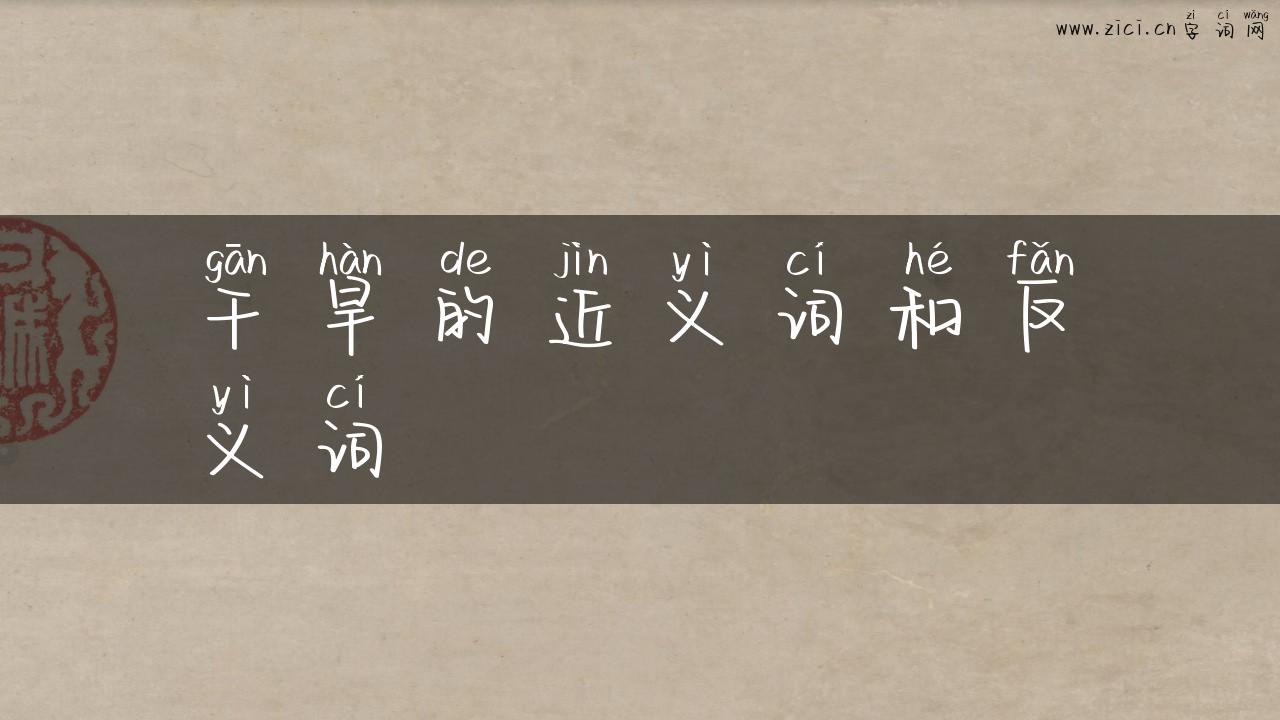 zì cí wǎng
www.zici.cn 字词网
gān hàn de jìn yì cí hé fǎn
干旱的近义词和反
yì cí
义词